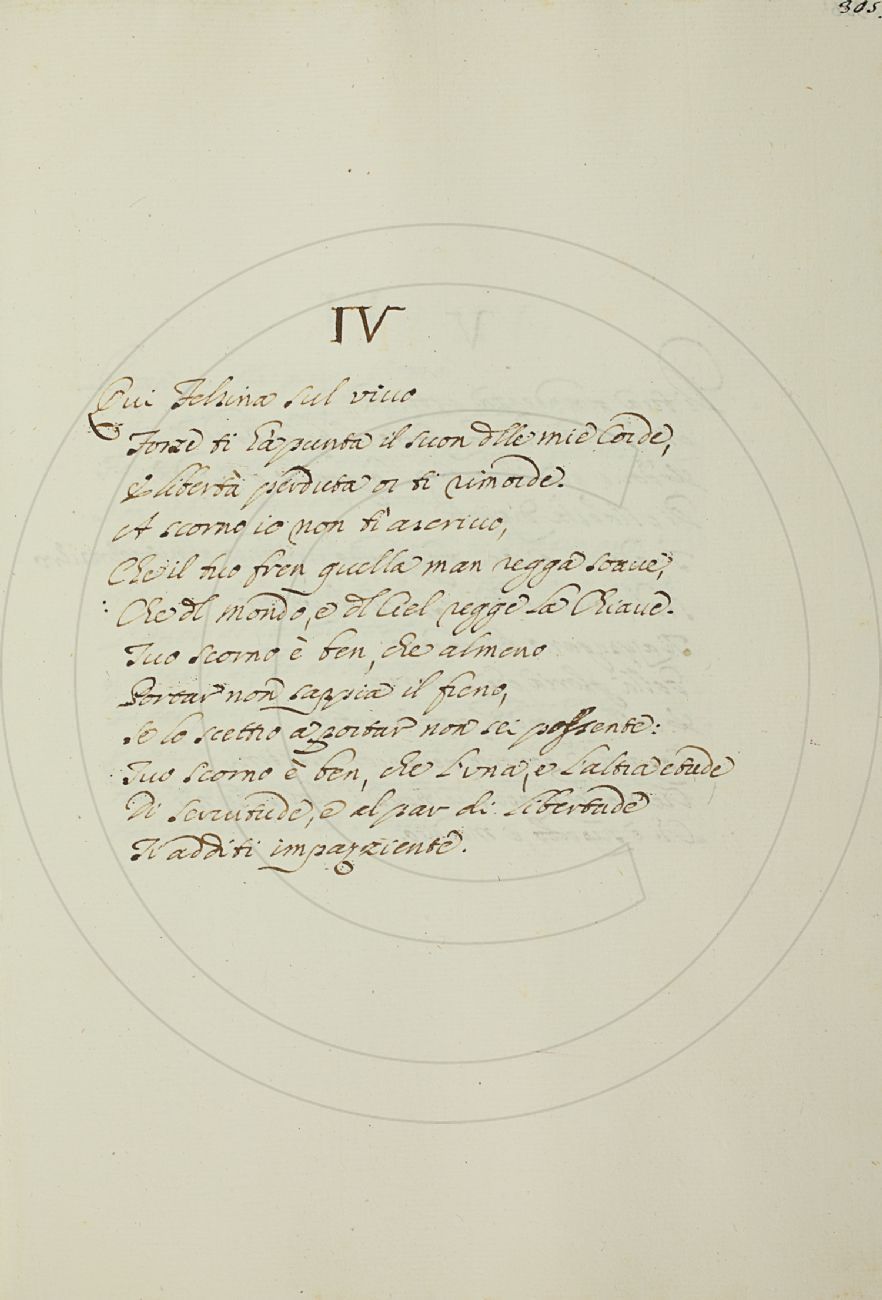 305.
IV
Qui Felsina sul viuo
Forze ti tà punta il suon dlle mie Corde,
E libertà perduta or ti rimorde.
A scorno io non ti ascriuo,
Che il tuo fren quella man regga soaue,
Che dl mondo, e dl Ciel regge la Chiaue.
Tuo scorno è ben, che almeno
Portar non sappia il freno,
Se lo scettro a portar non sei possente:
Tuo scorno è ben, che l'vna, e l'altra etude
Di seruitude, e al par di libertude
Ti additi impazziente.